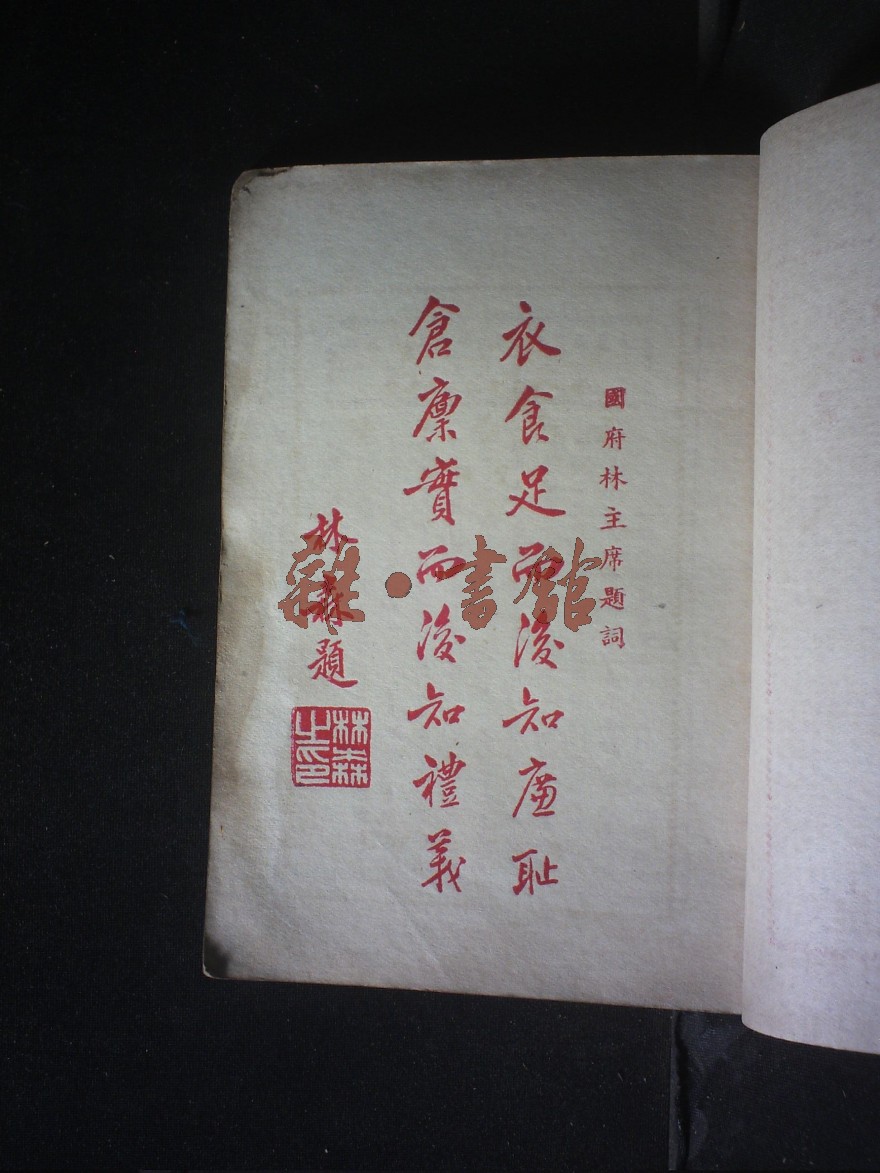 國府林主席題詞
衣食足而後知廉恥
倉廪實而後知禮義
林森題
林森之印
雜·書館